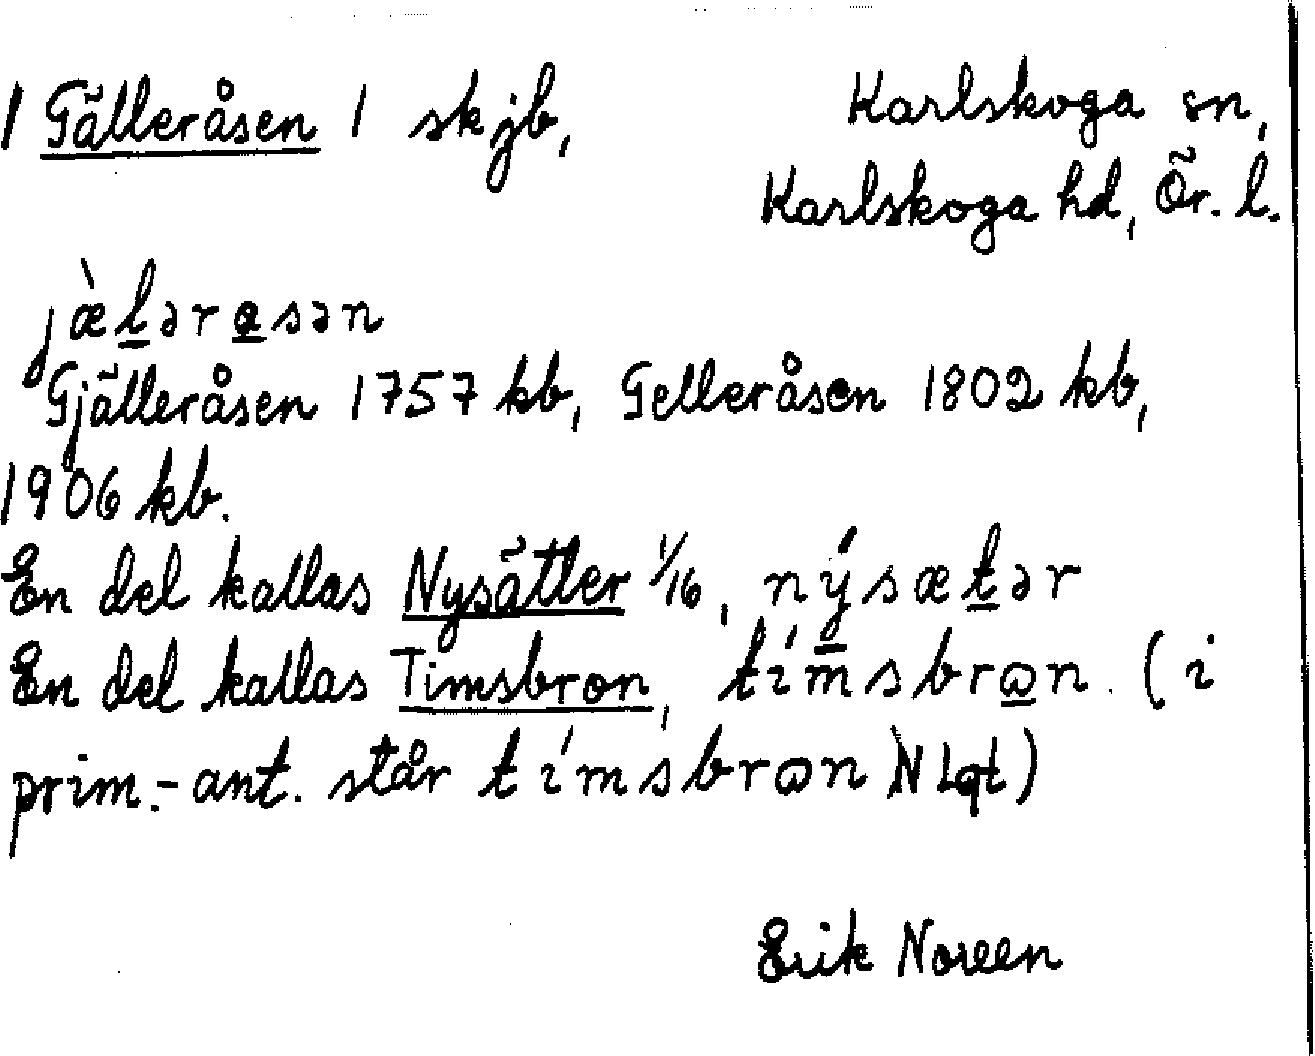 1 Gälleråsen 1 skjb, Karlskoga sn,
Karlskoga hd, Ör. l.
jæ̀l̲əra̲sən
Gjälleråsen 1757 kb, Gelleråsen 1802 kb,
1906 kb.
En del kallas Nysätter 1/16, ný̲sæt̲ər
En del kallas Timsbron, tím̲sbrω̲n. (i
prim.-ant. står tímsbrωn N Lgt)
Erik Noreen